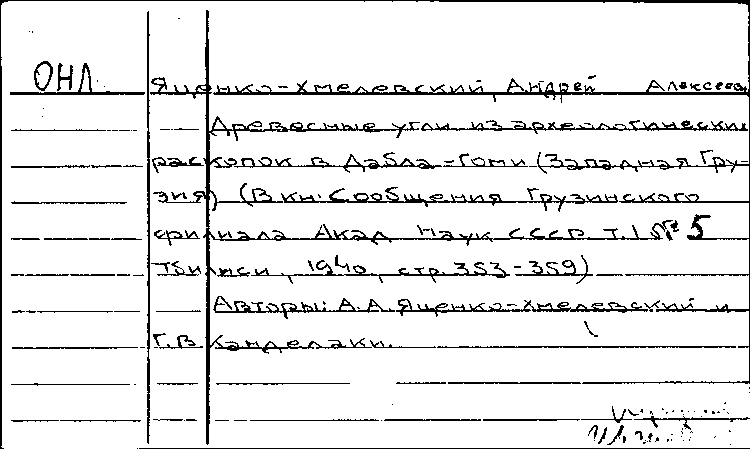 ОНЛ Яценко-Хмелевский, Андрей Алексеев
Древесные угли из археологических
раскопок в Дабла-Гоми (Западная Гру-
зия) (В кн: Сообщения Грузинского
филиала Акад Наук СССР. т.1 № 5
Тбилиси, 1940, стр. 353-359)
Авторы: А.А. Яценко-Хмелевский и
Г.В Канделаки.